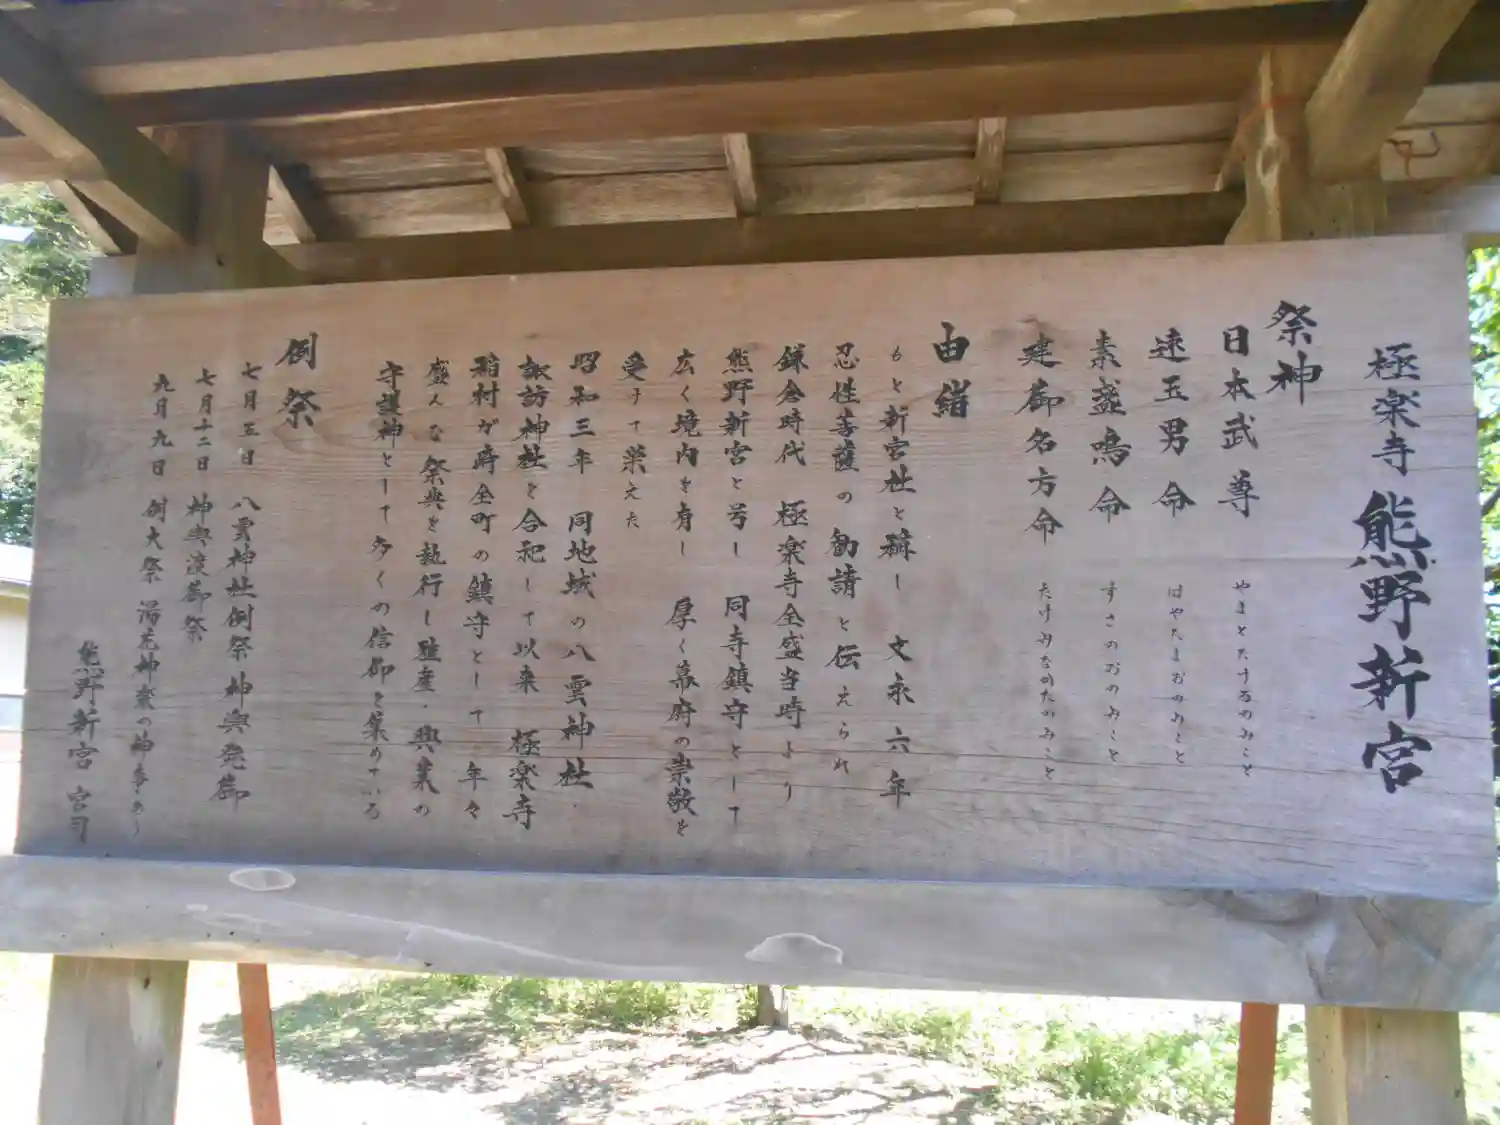 極楽寺 熊野新宮
祭神
日本武尊 やまとたけるのみこと
速玉男命 はやたまおのみこと
素盞鳴命 すさのおのみこと
建御名方命 たけみなかたのみこと
由緒
もと新宮社と稱し 文永六年
忍性菩薩の勧請と伝えられ
鎌倉時代 極楽寺全盛当時より
熊野新宮と号し 同寺鎮守として
広く境内を有し 厚く幕府の崇敬を
受けて栄えた
昭和三年 同地域の八雲神社・
諏訪神社を合祀して以来 極楽寺
稲村ガ崎全町の鎮守として 年々
盛んな祭典を執行し 殖産・興業の
守護神として多くの信仰を集めている
例祭
七月五日 八雲神社例祭 神輿発御
七月十二日 神輿渡御祭
九月九日 例大祭 湯花神楽の神事あり
熊野新宮 宮司